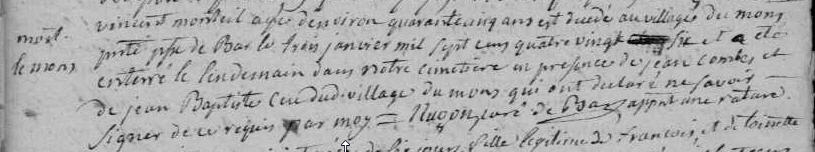 mort
le mons
vincent monteil agé denviron quarante cinq ans est decedé au village du mons
psse de Bar le trois janvier mil sept cens quatre vingt six et a eté
enterré le lendemain dans notre cimetiere en presence de jean combes et
de jean Baptiste dud. village du mons qui ont declaré ne savoir
signer de ce requis par moy = curé de Bar appr une rature
fille legitime de francois, et de toinette